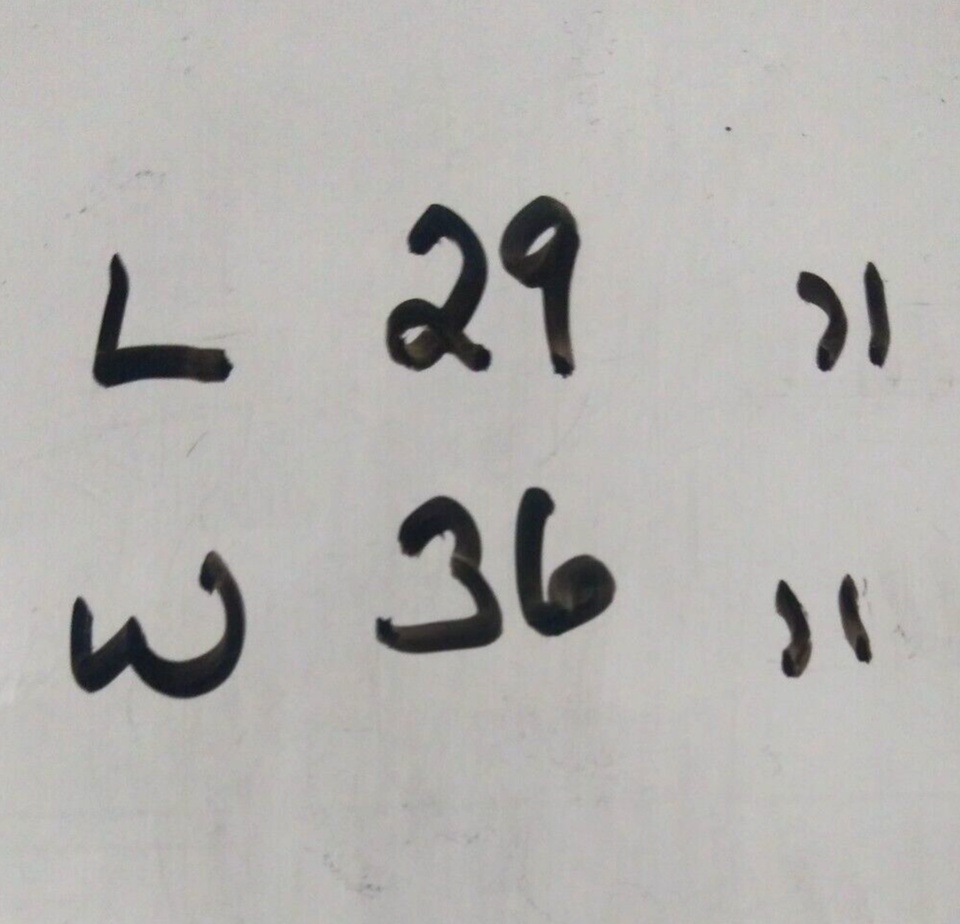 L 29 "
W 36 "